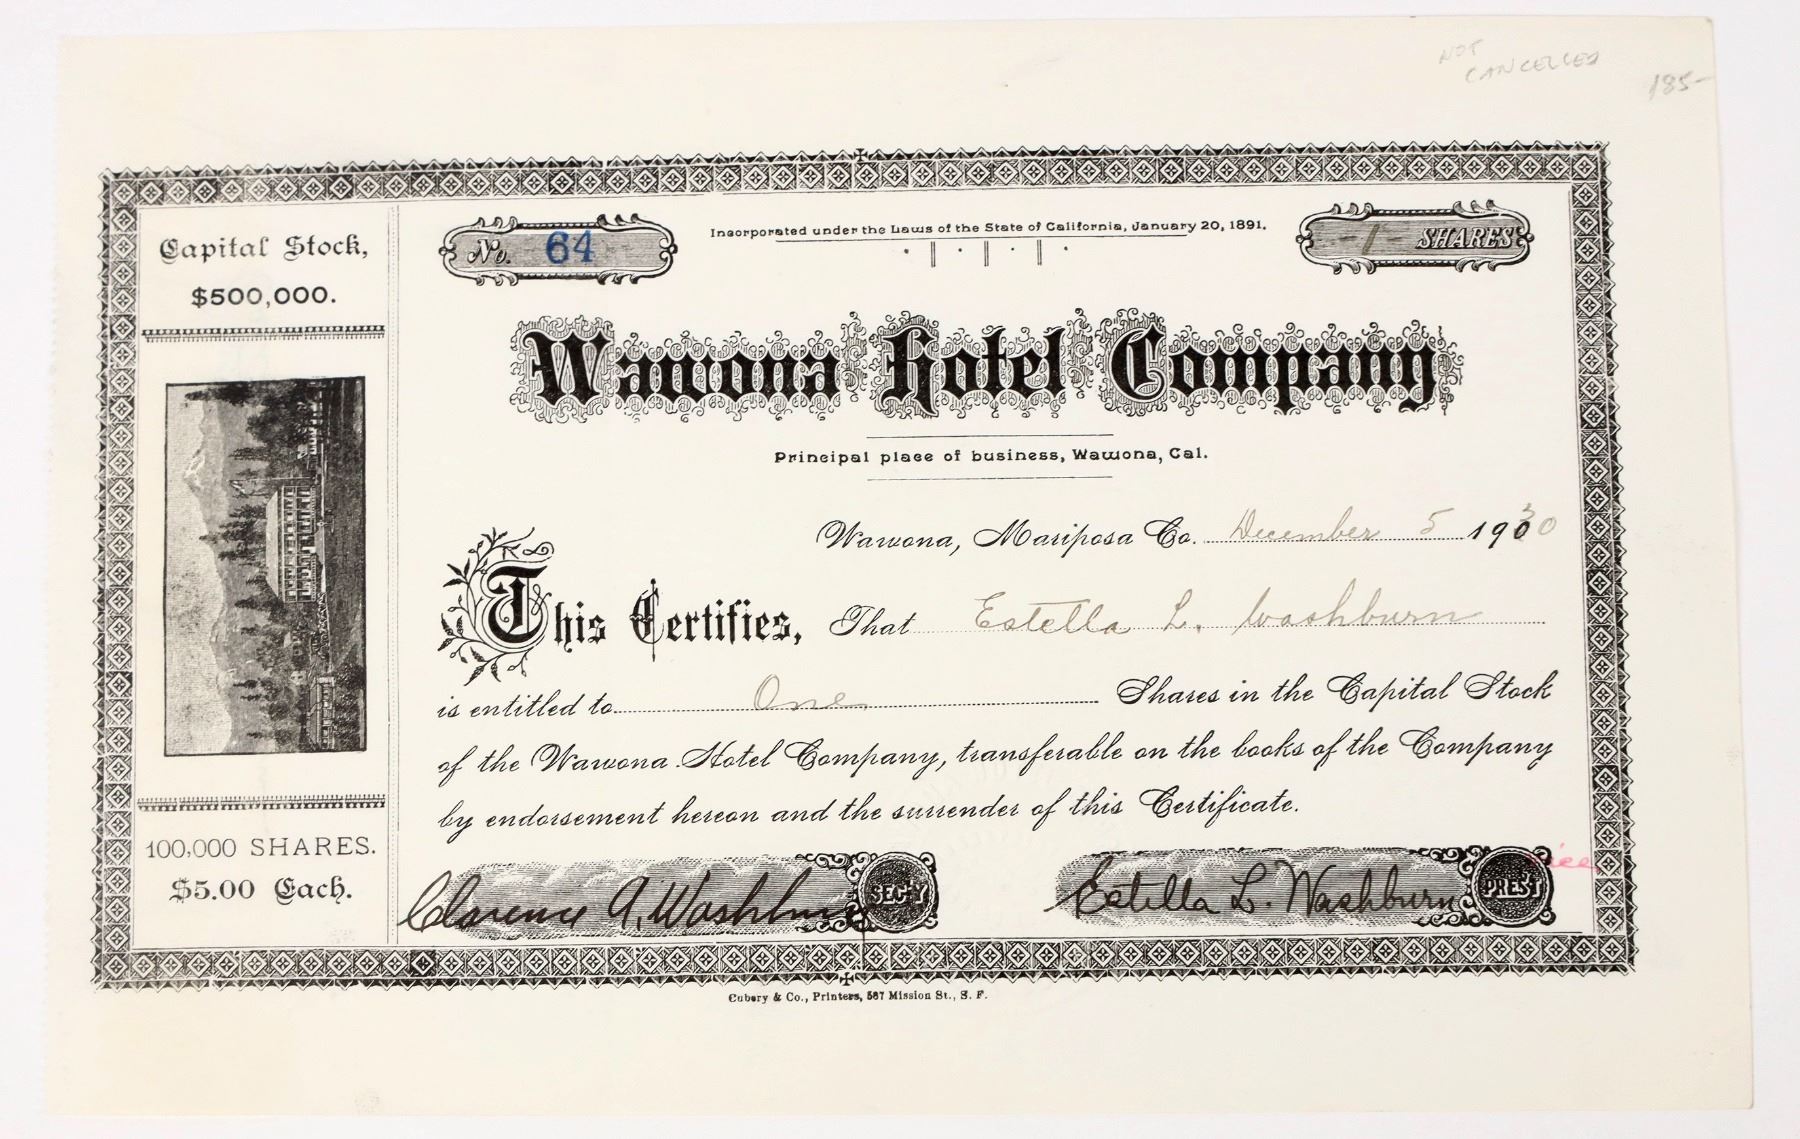 NOT
CANCELLED
185-
Capital Stock,
$500,000.
100,000 SHARES.
$5.00 Each.
No. 64
Incorporated under the Laws of the State of California, January 20, 1891.
-1- SHARES
Wawona Hotel Company
Principal place of business, Wawona, Cal.
Wawona, Mariposa Co. December 5 1930
This Certifies, That Estella L. Washburn
is entitled to One Shares in the Capital Stock
of the Wawona Hotel Company, transferable on the books of the Company
by endorsement hereon and the surrender of this Certificate.
Clarence A. Washburn SEC'Y
Estella L. Washburn PREST
Cubery & Co., Printers, 587 Mission St., S. F.